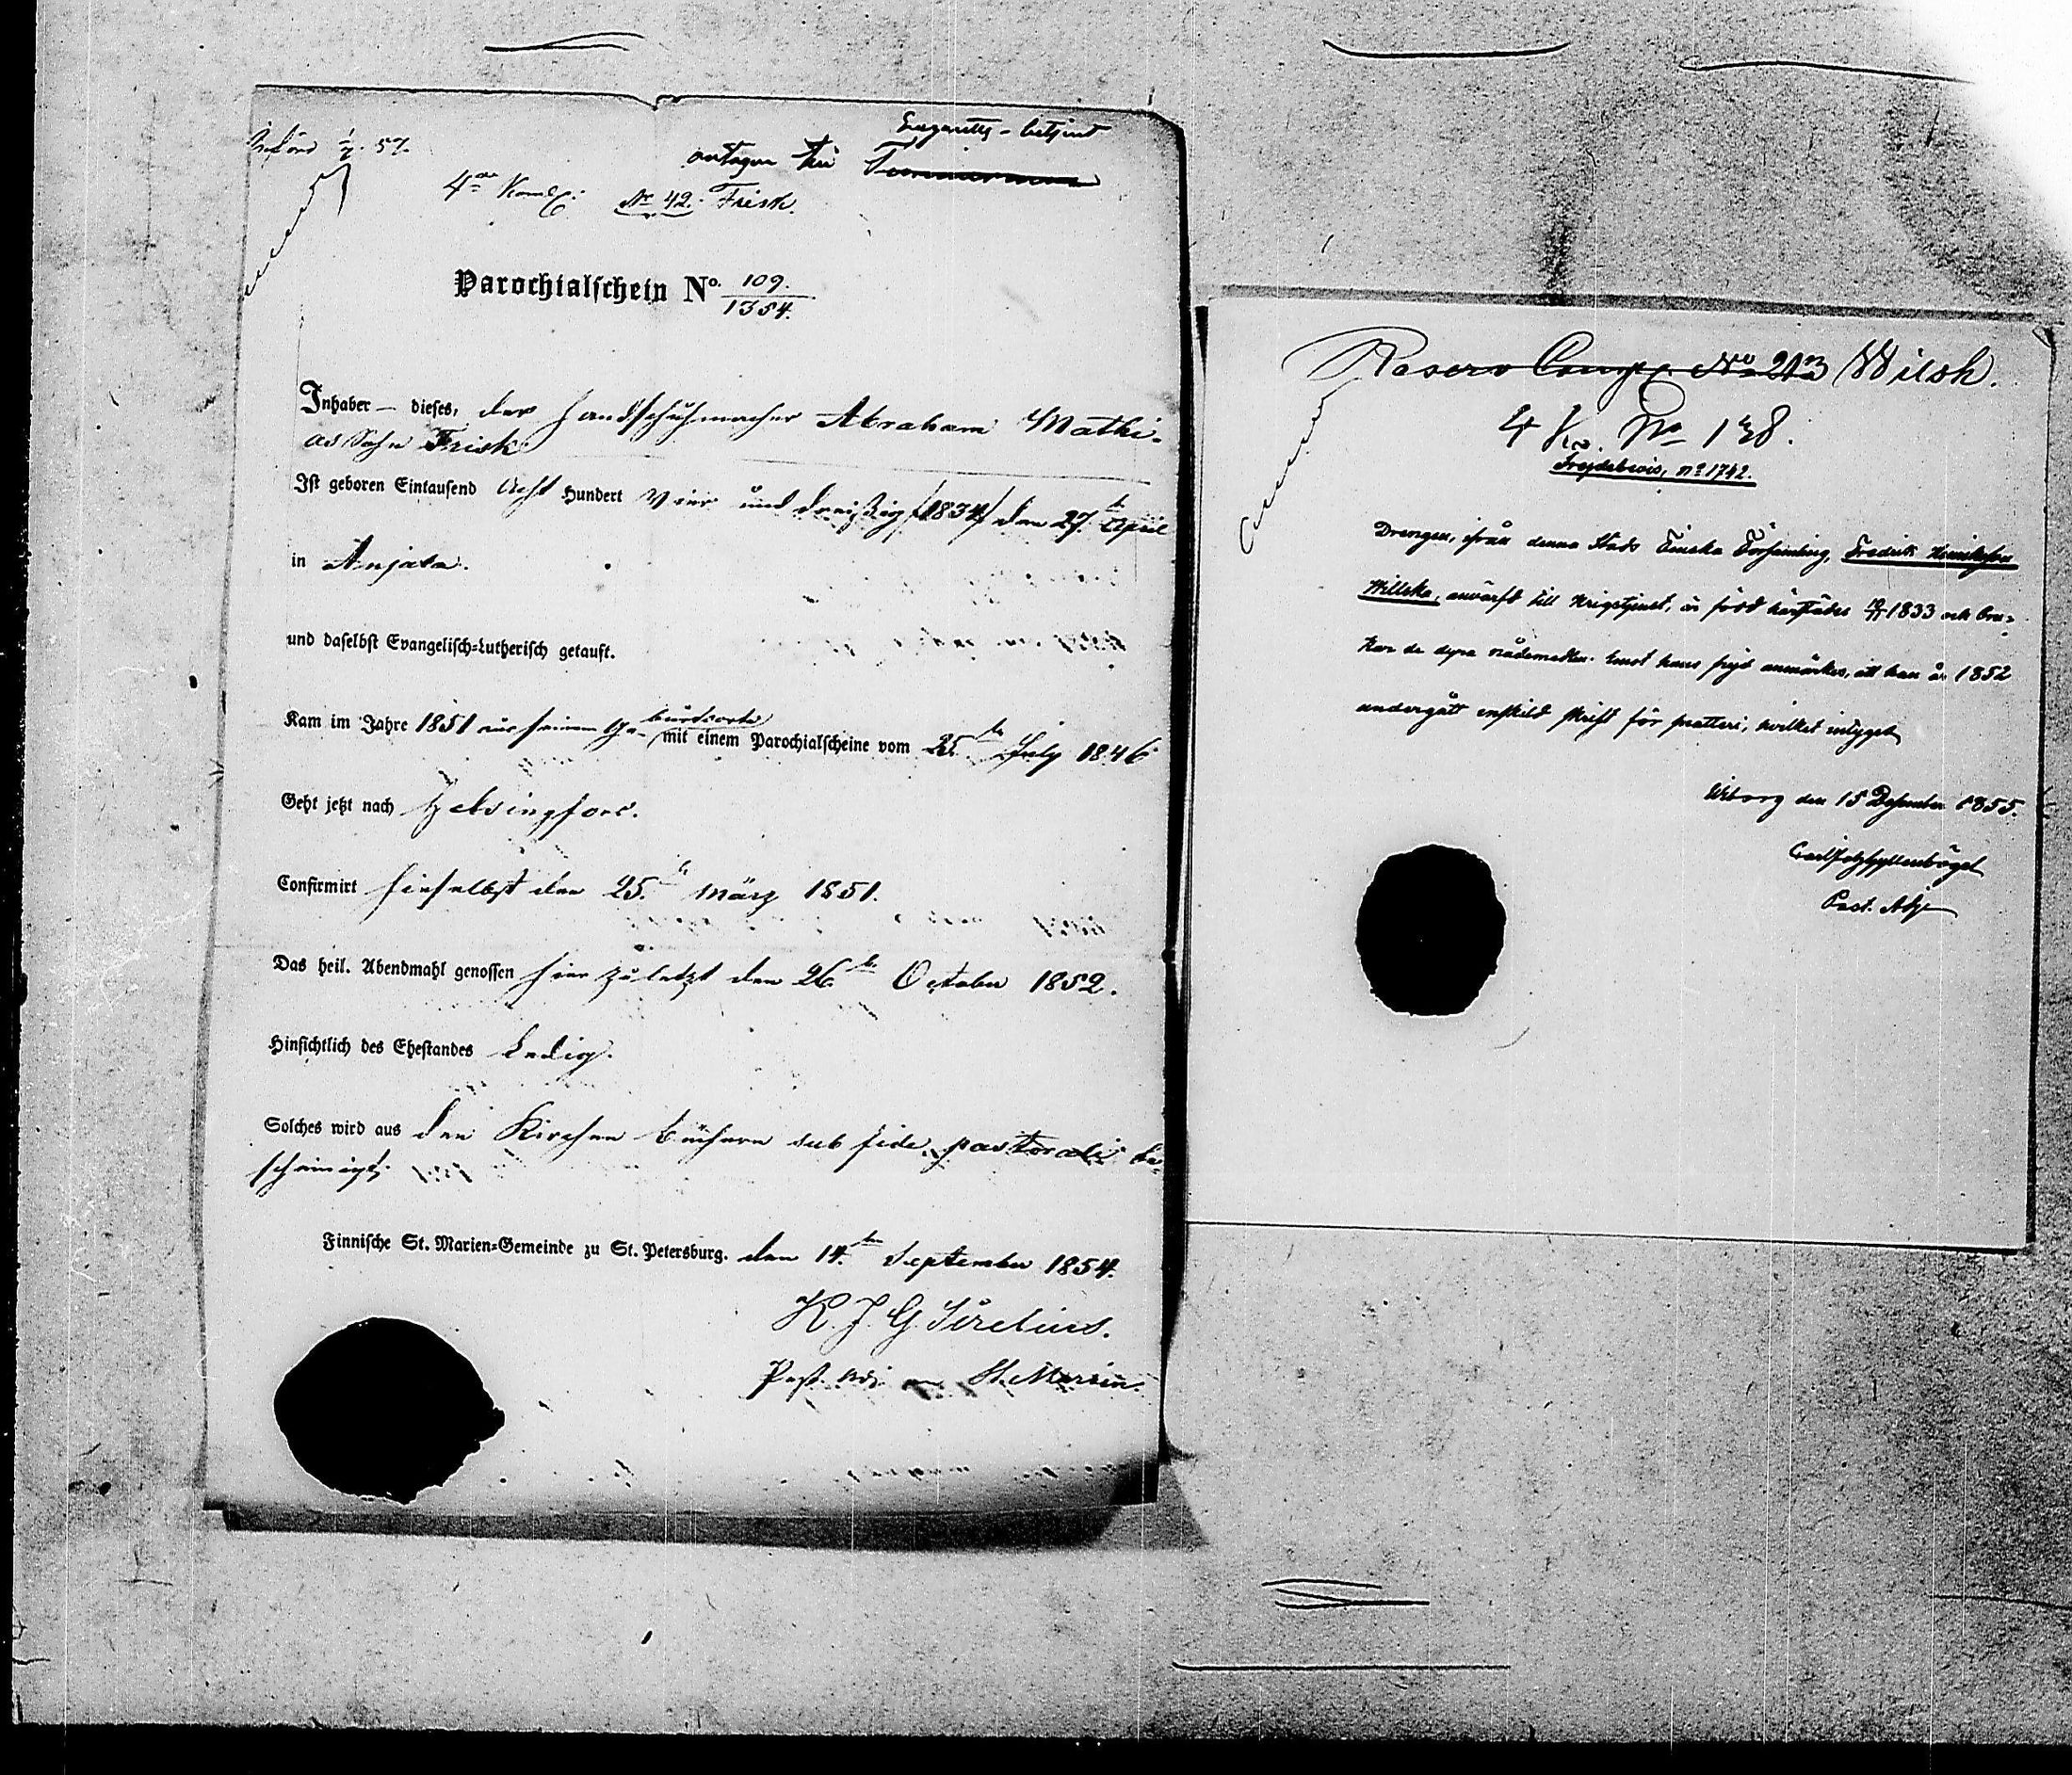 Lazaretts-betjent
antagen till Timmerman
4de Komp: No 42. Frisk.
Parochialschein No. 109./1354.
Inhaber — dieses, der Handschuhmacher Abraham Mathi-
as Sohn Frisk
Ist geboren Eintausend Acht Hundert Vier und dreißig /1834/ den 27.t April
in Anjala.
und daselbst Evangelisch-Lutherisch getauft.
Kam im Jahre 1851 aus seinem Ge-burtsorte mit einem Parochialscheine vom 25.ten July 1846
Geht jetzt nach Helsingfors.
Confirmirt hieselbst den 25.t März 1851.
Das heil. Abendmahl genossen hier zuletzt den 26.te October 1852.
Hinsichtlich des Ehestandes Ledig.
Solches wird aus den Kirchen büchern sub fide pastorali be-
scheinigt.
Finnische St. Marien-Gemeinde zu St. Petersburg. den 14.ten September 1854.
K. J. G. Sirelius.
Past. Adj. an St. Marien.
Reserv Comp. No 213 Wilsk.
4 Ko. No 138.
Frejdebevis, no 1742.
Drengen, ifrån denna Stads Finska Församling, Fredrik Henriksson
Willska, anvärfd till Krigstjenst, är född härstädes 1833 och bru-
kar de dyra nådemedlen. Emot hans frejd anmärkes, att han år 1852
undergått enskild skrift för snatteri, hvilket intygas
Wiborg den 15 December 1855.
Past. Adj